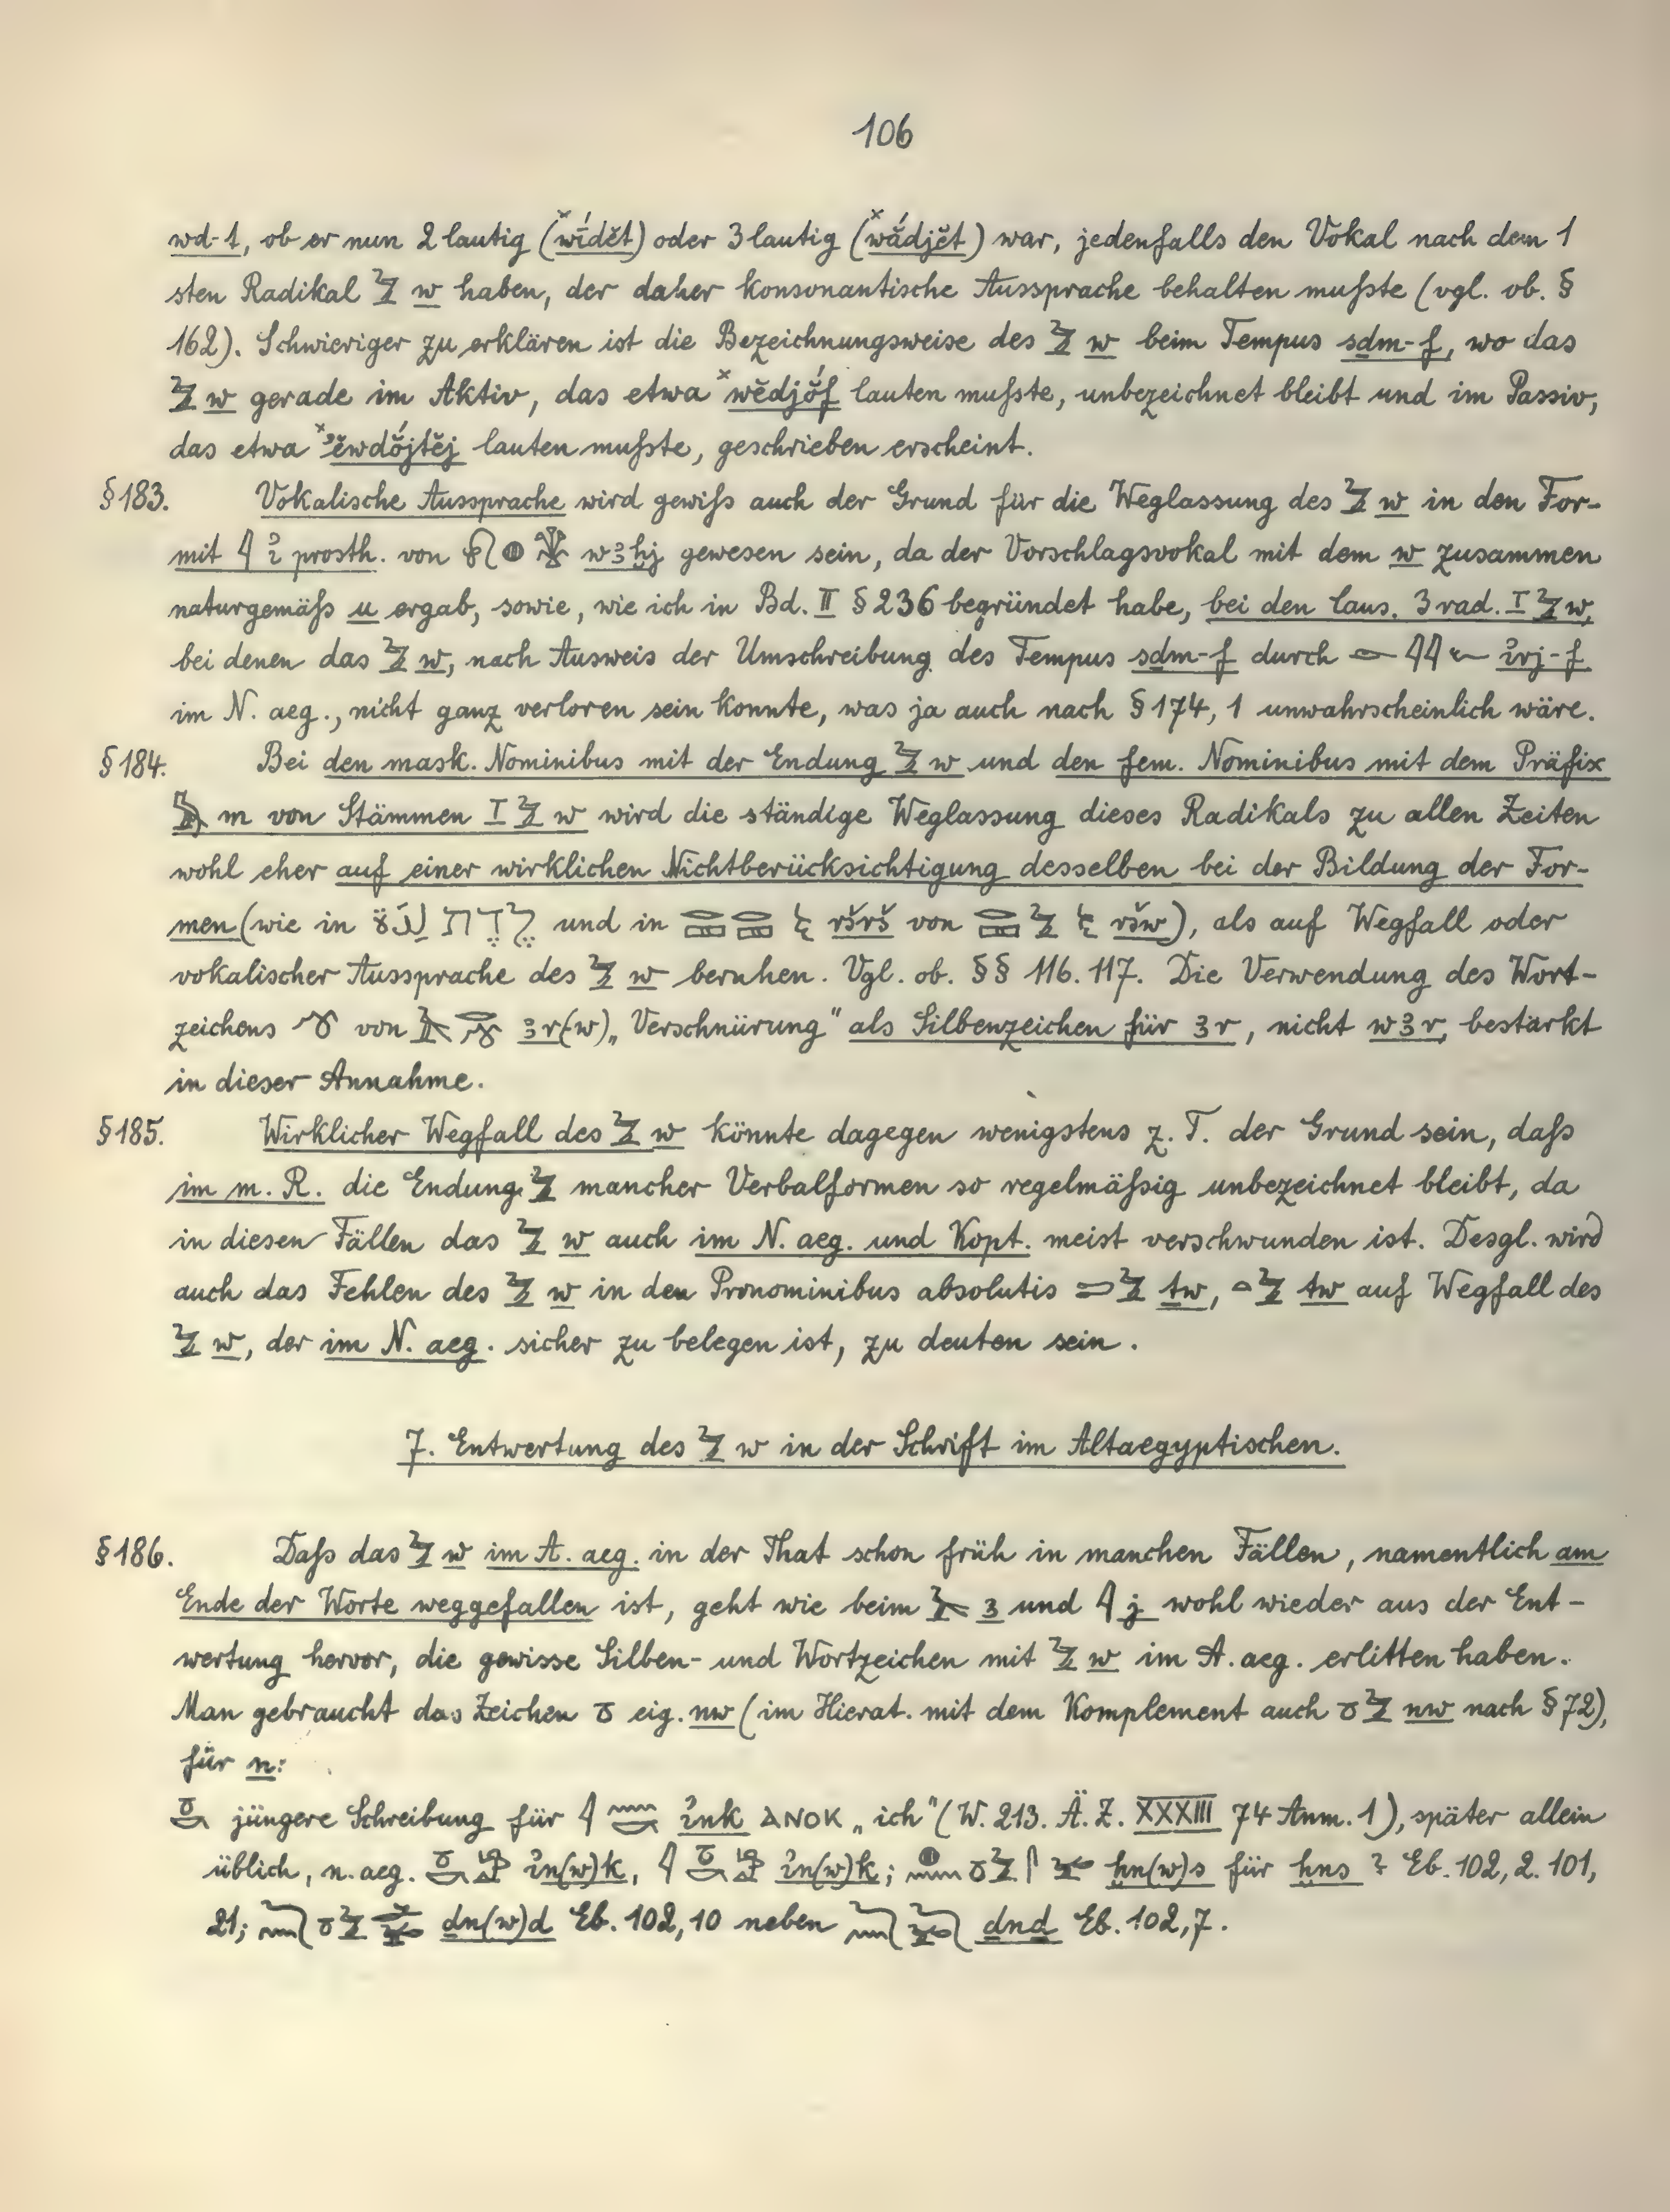 106
wd-t, ob er nun 2 lautig (×wĭ́dĕt) oder 3 lautig (×wắdjĕt) war, jedenfalls den Vokal nach dem 1
sten Radikal 𓅱 w haben, der daher konsonantische Aussprache behalten mußte (vgl. ob. §
162). Schwieriger zu erklären ist die Bezeichnungsweise des 𓅱 w beim Tempus sḏm-f, wo das
𓅱 w gerade im Aktiv, das etwa ×wĕdjŏ́f lauten mußte, unbezeichnet bleibt und im Passiv,
das etwa ×ʾĕwdŏ́jtĕj lauten mußte, geschrieben erscheint.
§ 183. Vokalische Aussprache wird gewiß auch der Grund für die Weglassung des 𓅱 w in den For-
mit 𓇋 ỉ prosth. von 𓎗𓐍𓇅 wꜣḫj gewesen sein, da der Vorschlagsvokal mit dem w zusammen
naturgemäß u ergab, sowie, wie ich in Bd. II § 236 begründet habe, bei den Caus. 3 rad. I 𓅱 w,
bei denen das 𓅱 w, nach Ausweis der Umschreibung des Tempus sḏm-f durch 𓁹𓇋𓇋𓆑 ỉrj-f
im N. aeg., nicht ganz verloren sein konnte, was ja auch nach § 174, 1 unwahrscheinlich wäre.
§ 184. Bei den mask. Nominibus mit der Endung 𓅱 w und den fem. Nominibus mit dem Präfix
𓅓 m von Stämmen I 𓅱 w wird die ständige Weglassung dieses Radikals zu allen Zeiten
wohl eher auf einer wirklichen Nichtberücksichtigung desselben bei der Bildung der For-
men (wie in لِدَةٌ לֶדֶת und in 𓂋𓈙𓂋𓈙 ršrš von 𓂋𓈙𓅱 ršw), als auf Wegfall oder
vokalischer Aussprache des 𓅱 w beruhen. Vgl. ob. §§ 116. 117. Die Verwendung des Wort-
zeichens 𓍯 von 𓄿𓂋𓍯 ꜣr(w) „Verschnürung" als Silbenzeichen für ꜣr, nicht wꜣr, bestärkt
in dieser Annahme.
§ 185. Wirklicher Wegfall des 𓅱 w könnte dagegen wenigstens z. T. der Grund sein, daß
im m. R. die Endung 𓅱 mancher Verbalformen so regelmäßig unbezeichnet bleibt, da
in diesen Fällen das 𓅱 w auch im N. aeg. und Kopt. meist verschwunden ist. Desgl. wird
auch das Fehlen des 𓅱 w in den Pronominibus absolutis 𓍿𓅱 ṯw, 𓏏𓅱 tw auf Wegfall des
𓅱 w, der im N. aeg. sicher zu belegen ist, zu deuten sein.
7. Entwertung des 𓅱 w in der Schrift im Altaegyptischen.
§ 186. Daß das 𓅱 w im A. aeg. in der That schon früh in manchen Fällen, namentlich am
Ende der Worte weggefallen ist, geht wie beim 𓄿 ꜣ und 𓇋 j wohl wieder aus der Ent-
wertung hervor, die gewisse Silben- und Wortzeichen mit 𓅱 w im A. aeg. erlitten haben.
Man gebraucht das Zeichen 𓏌 eig. nw (im Hierat. mit dem Komplement auch 𓏌𓅱 nw nach § 72),
für n:
𓏌𓎡 jüngere Schreibung für 𓇋𓈖𓎡 ỉnk ⲁⲛⲟⲕ „ich" (W. 213. Ä. Z. XXXIII 74 Anm. 1), später allein
üblich, n. aeg. 𓏌𓎡 ỉn(w)k, 𓇋𓏌𓎡 ỉn(w)k; 𓐍𓈖𓏌𓅱𓋴 ḫn(w)s für ḫns ? Eb. 102, 2. 101,
21; 𓂧𓈖𓏌𓅱𓂧 dn(w)d Eb. 102, 10 neben 𓆓𓈖𓆓 ḏnḏ Eb. 102, 7.